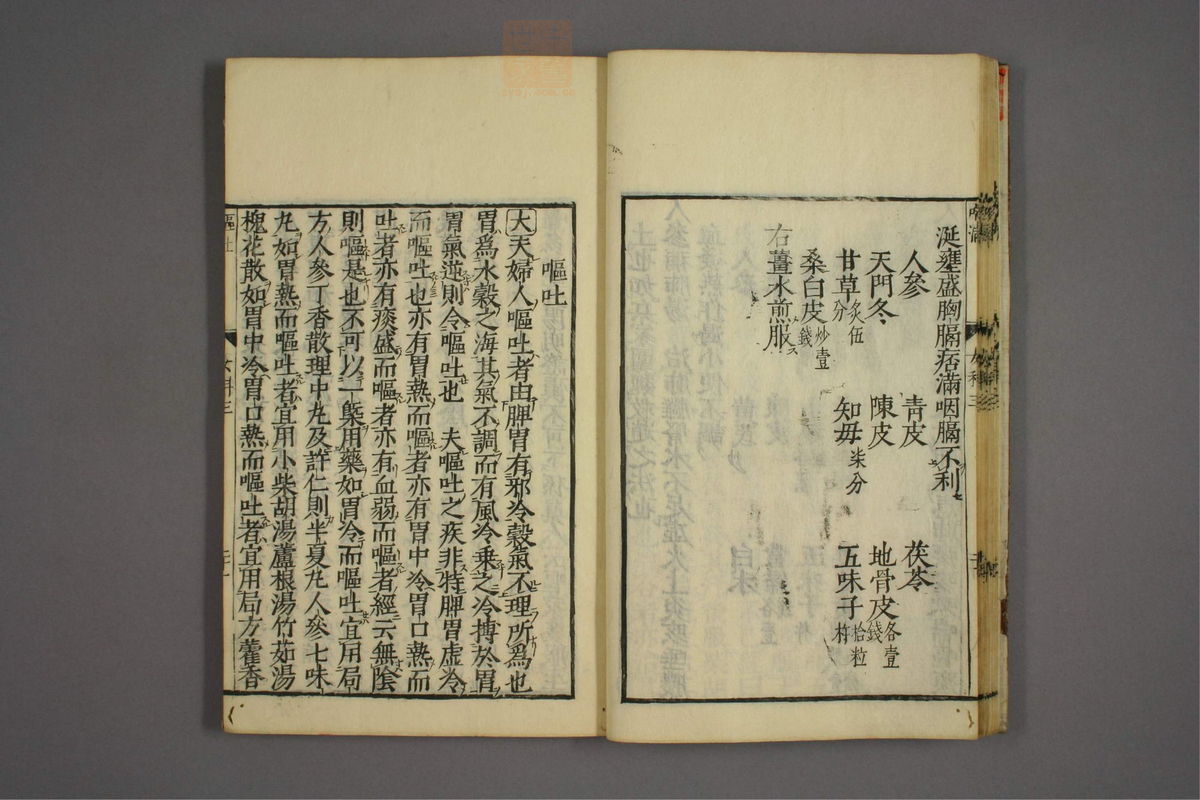 涎壅盛胸膈痞滿咽膈不利
人參 青皮 茯苓
天門冬 陳皮 地骨皮各壹錢
甘草炙伍分 知母柒分 五味子拾粒杵
桑白皮炒壹錢
右薑水煎服
嘔吐
大夫婦人嘔吐者由脾胃有邪冷穀氣不理所爲也
胃爲水穀之海其氣不調而有風冷乗之冷搏於胃
胃氣逆則令嘔吐也 夫嘔吐之疾非特脾胃虛冷
而嘔吐也亦有胃熱而嘔者亦有胃中冷胃口熱而
吐者亦有痰盛而嘔者亦有血弱而嘔者經云無陰
則嘔是也不可以一槩用藥如胃冷而嘔吐宜用局
方人參丁香散理中丸及許仁則半夏丸人參七味
丸如胃熱而嘔吐者宜用小柴胡湯蘆根湯竹茹湯
槐花散如胃中冷胃口熱而嘔吐者宜用局方藿香
嘔吐
女科三